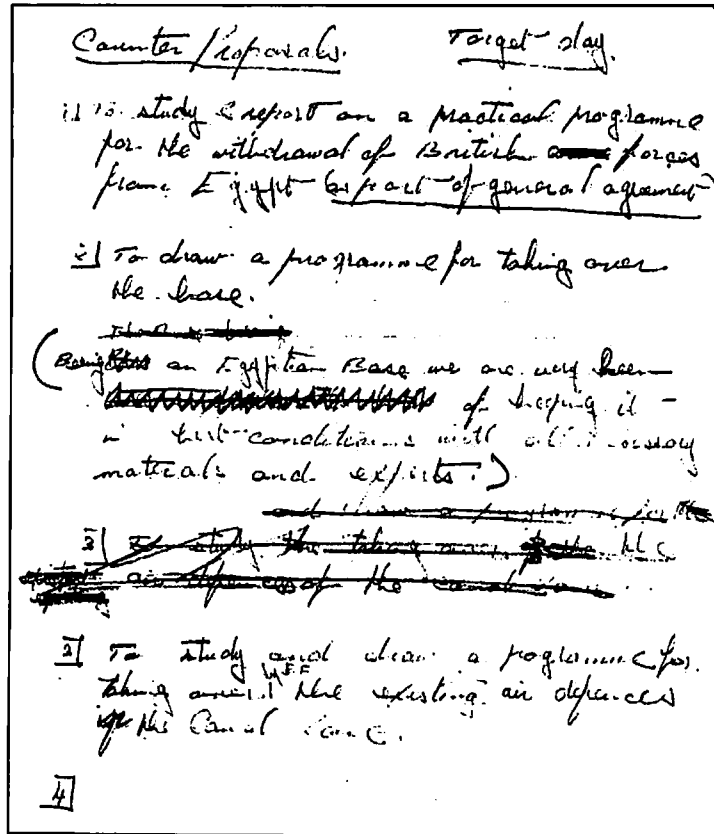 Counter Proposals. Target day.
1] To study & report on a practical programme
for the withdrawal of British forces
from Egypt as part of general agrement
2] To draw a programme for taking over
the base.
(Being an Egyptian Base we are very keen
of keeping it -
in best conditions with all necessary
materials and experts.)
3] To study the taking over the
air defences of the canal zone
3] To study and draw a programme for
taking over by E.F the existing air defences
of the Canal Zone.
4]